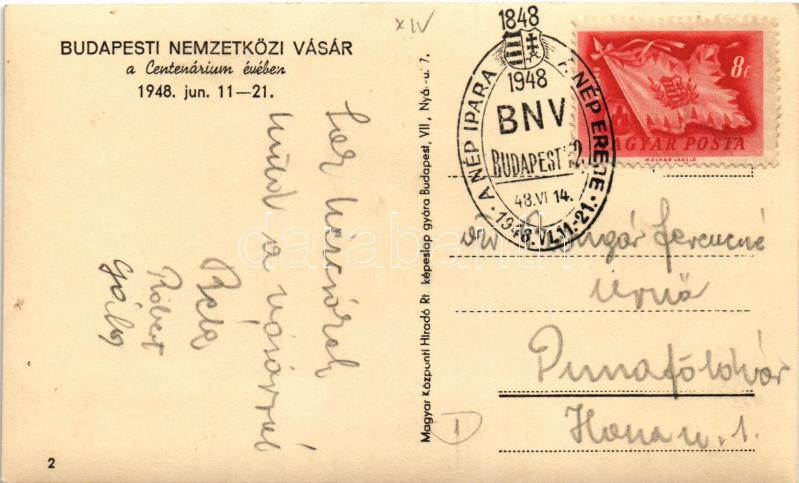 XIV
BUDAPESTI NEMZETKÖZI VÁSÁR
a Centenárium évében
1948. jun. 11—21.
Sok
küld a vásárról
Béla
Róbert
Gábor
2
Magyar Központi Híradó Rt. képeslap gyára Budapest, VII., Nyár-u. 7.
1848
1948
BNV
BUDAPEST 2.
48.VI 14.
A NÉP IPARA A NÉP EREJE
1948.VI.11-21.
8f
MAGYAR POSTA
MOLNÁR LÁSZLÓ
Ungár Ferencné
úrnő
Dunaföldvár
Ilona u. 1.
I
darabanth